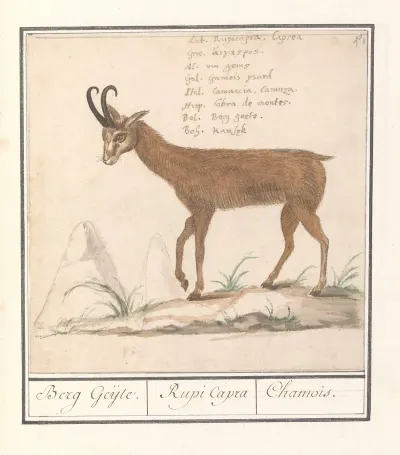 Lat. Rupicapra, Caprea
Al. ein gems
Gal. Chamois ysard
Ital. Camuccia, Camuza
Hisp. Cabra de montes.
Bel. Berg geete.
Boh.
Berg Geÿte.
Rupi Capra
Chamois.